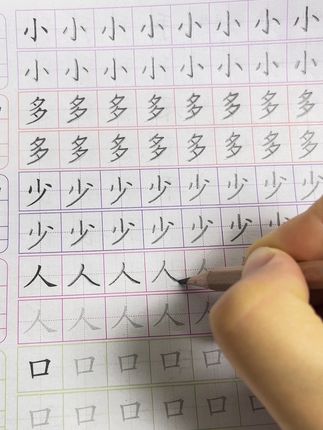 小小小小小小小小
小小小小小小小小
多多多多多多多多
多多多多多多多多
少少少少少少少少
少少少少少少少
人人人人人
人人人人人
口口口口口
口口口口口口